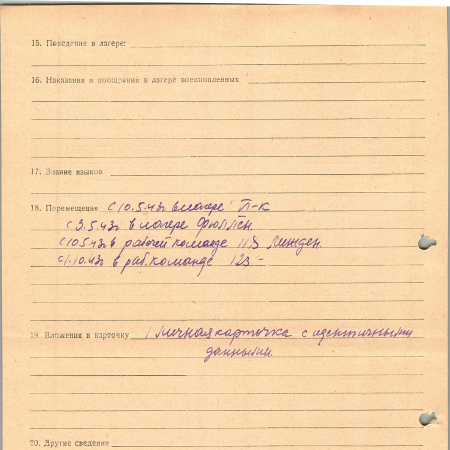 15. Поведение в лагере:
16. Наказания и поощрения в лагере военнопленных
17. Знание языков
18. Перемещения с 10.5.43г в лагере П-К
с 3.5.43г в лагере Фюллен
с 10.5.43г в рабочей команде 113 Линген
с 1.10.43г в раб.команде 123 -
19. Вложения в карточку 1 личная карточка с идентичными
данными.
20. Другие сведения